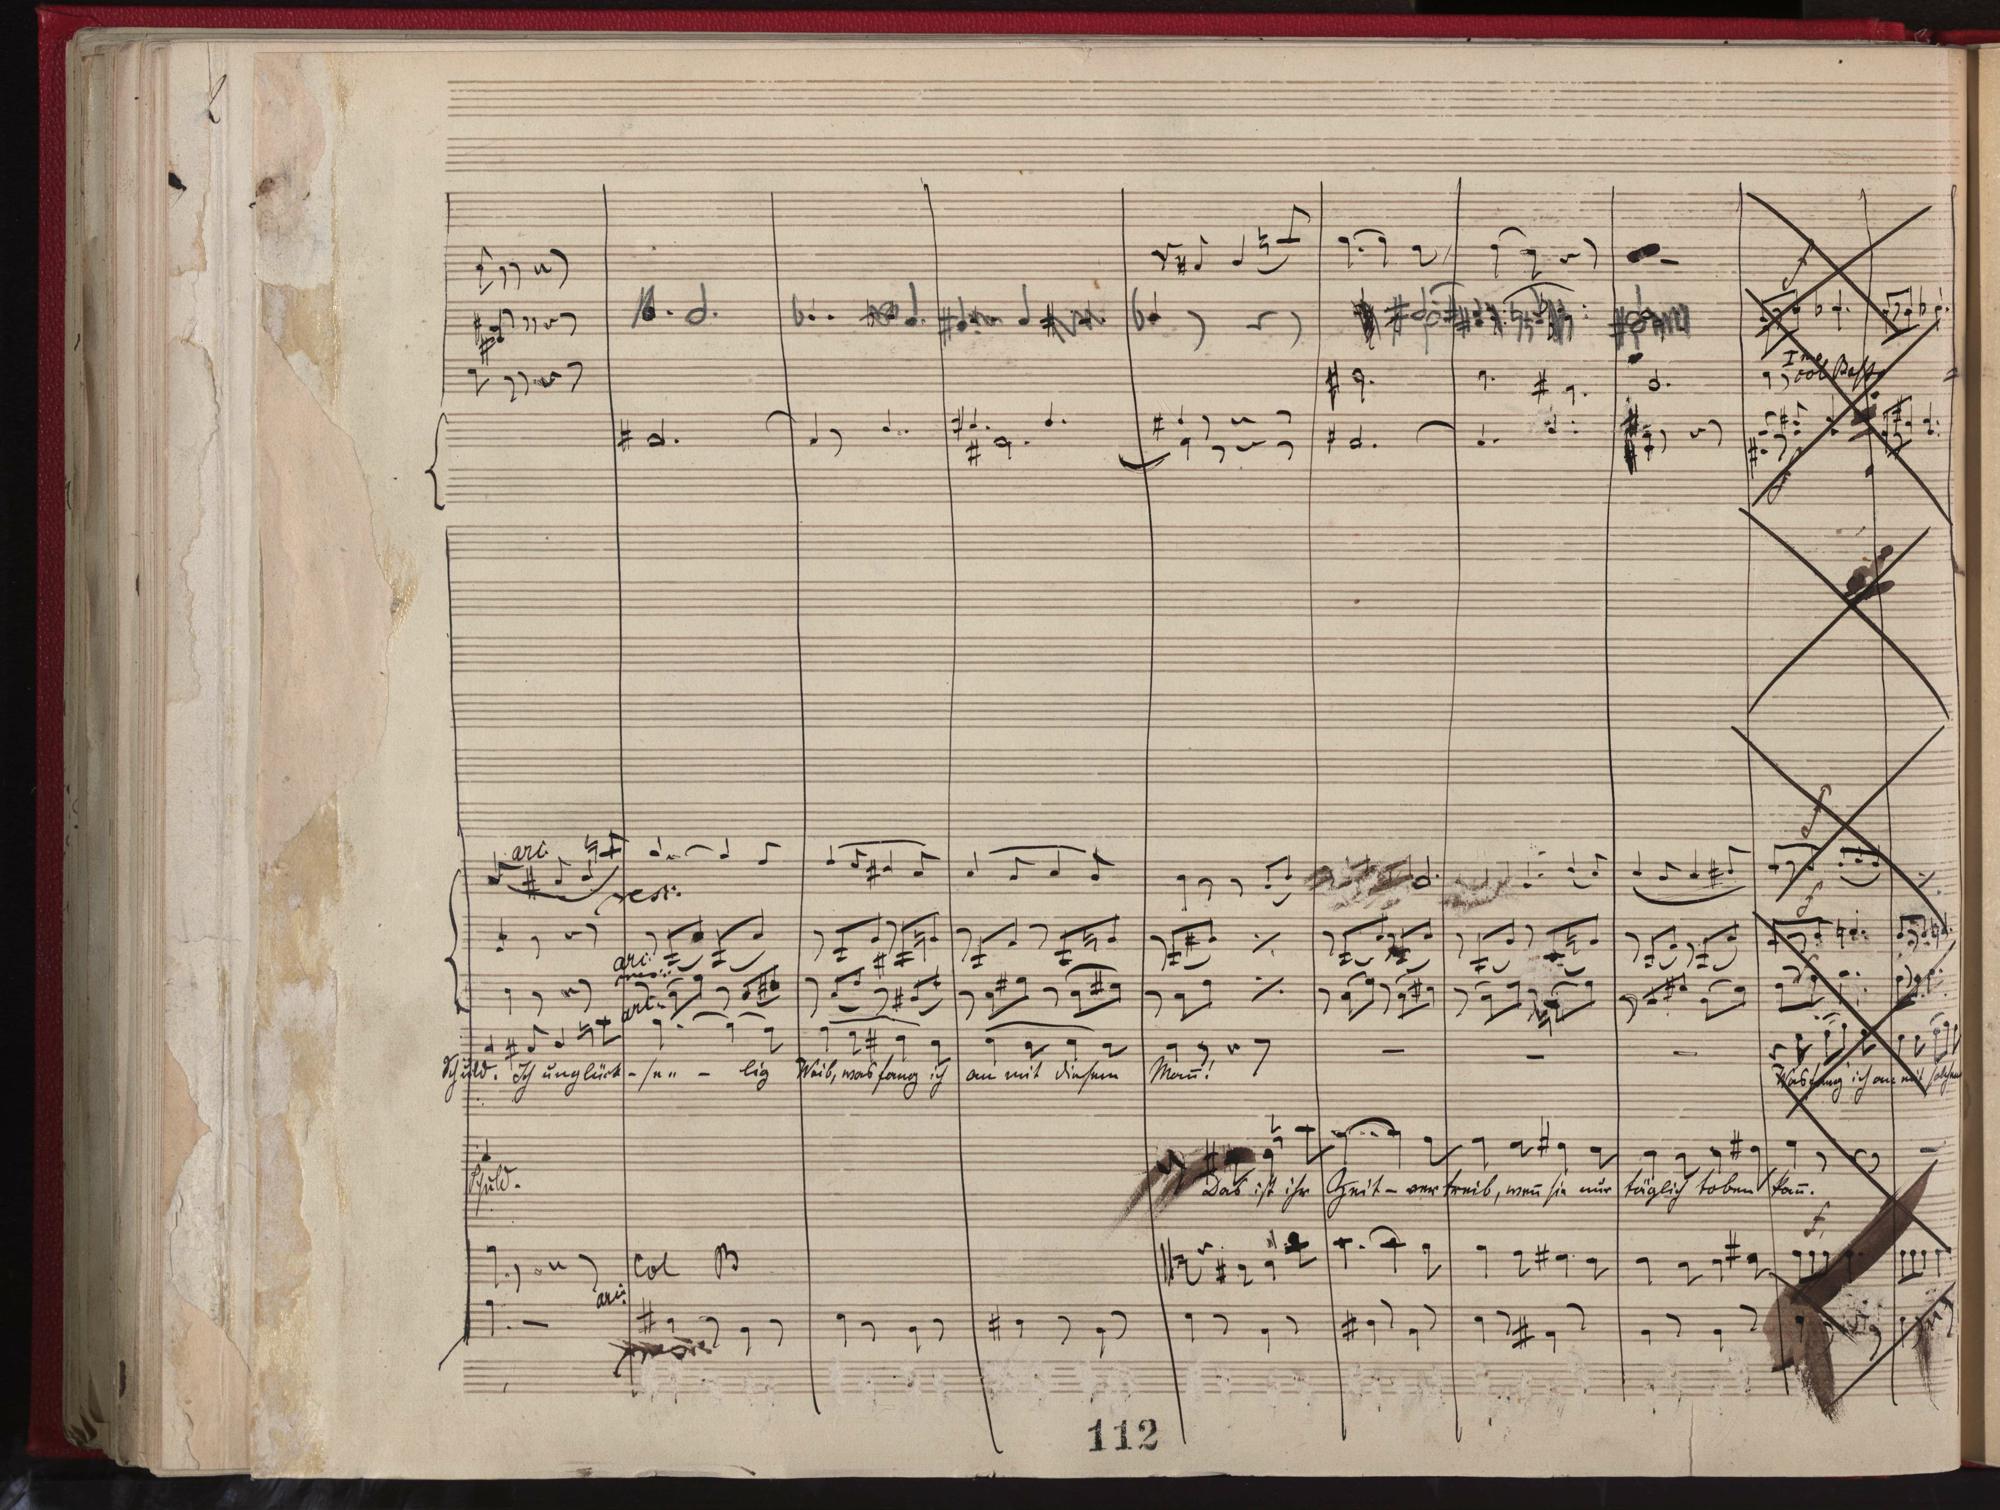 I mo
col Basso
arc
arc.
arc.
Schuld. Ich unglück-se" - lig Weib, was fang ich an mit diesem Mañ! Was fang ich an mit solchem
Schuld. Das ist ihr Zeit-vertreib, weñ sie nur täglich toben kañ.
f
col B
arc.
112